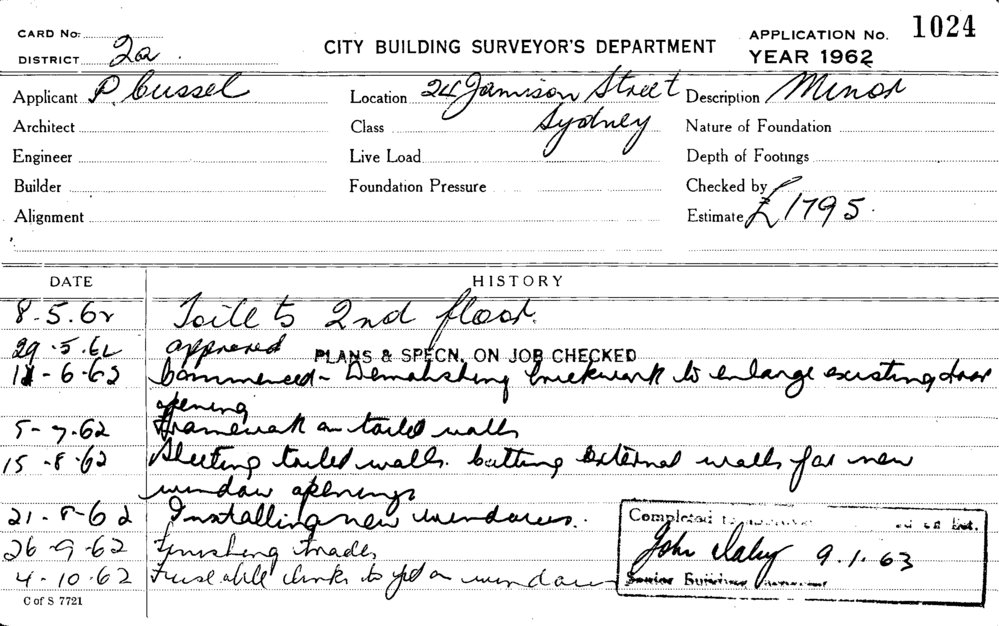 CARD No:
DISTRICT 2a.
CITY BUILDING SURVEYOR'S DEPARTMENT
APPLICATION No. 1024
YEAR 1962
Applicant P Cussel
Location 24 Jamison Street
Sydney
Description Minor
Architect
Class
Nature of Foundation
Engineer
Live Load
Depth of Footings
Builder
Foundation Pressure
Checked by
Alignment
Estimate £1795.
DATE
HISTORY
8.5.62 Toilets 2nd floor.
29.5.62 approved PLANS & SPECN. ON JOB CHECKED
-6-62 Commenced - Demolishing brickwork to enlarge existing door
opening
5-7.62 Framework on toilet walls
15-8-62 Sheeting toilet walls. Cutting external walls for new
window openings
21-8-62 Installing new windows.
26-9-62 Finishing trades
4-10-62 Fuseable links to on windows
Completed
John Daley 9.1.63
Senior Building
C of S 7721